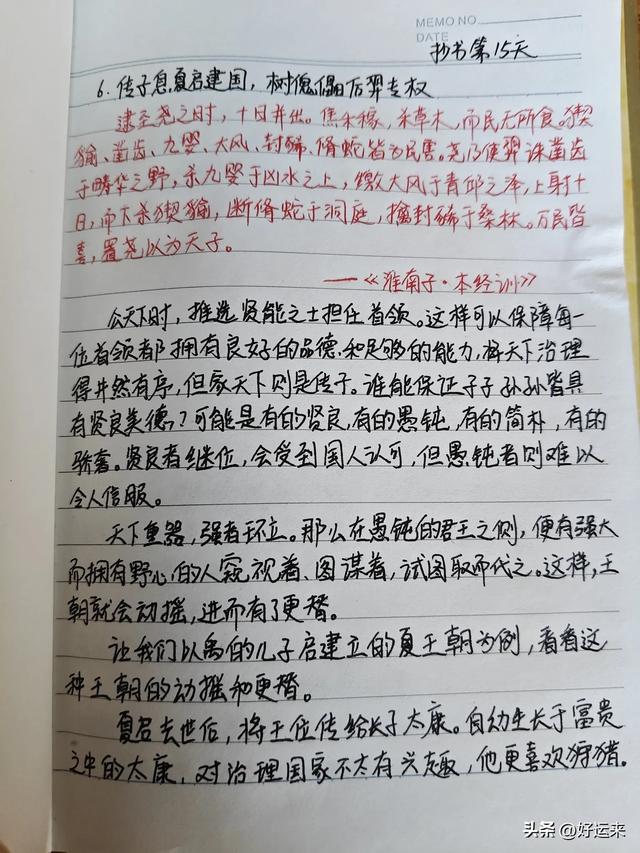 MEMO NO.
DATE
抄书第15天
6. 传子息夏启建国，树傀儡后羿专权
逮至尧之时，十日并出。焦禾稼，杀草木，而民无所食。猰
貐、凿齿、九婴、大风、封豨、脩蛇皆为民害。尧乃使羿诛凿齿
于畴华之野，杀九婴于凶水之上，缴大风于青邱之泽，上射十
日，而下杀猰貐，断脩蛇于洞庭，擒封豨于桑林。万民皆
喜，置尧以为天子。
——《淮南子·本经训》
公天下时，推选贤能之士担任首领。这样可以保障每一
位首领者都拥有良好的品德和足够的能力，将天下治理
得井然有序，但家天下则是传子。谁能保证子子孙孙皆具
有贤良美德？可能是有的贤良，有的愚钝，有的简朴，有的
骄奢。贤良者继位，会受到国人认可，但愚钝者则难以
令人信服。
天下重器，强者环立。那么在愚钝的君王之侧，便有强大
而拥有野心的人窥视着、图谋着，试图取而代之。这样，王
朝就会动摇，进而有了更替。
让我们以禹的儿子启建立的夏王朝为例，看看这
种王朝的动摇和更替。
夏启去世后，将王位传给长子太康。自幼生长于富贵
之中的太康，对治理国家不太有兴趣，他更喜欢狩猎。
头条 @好运来